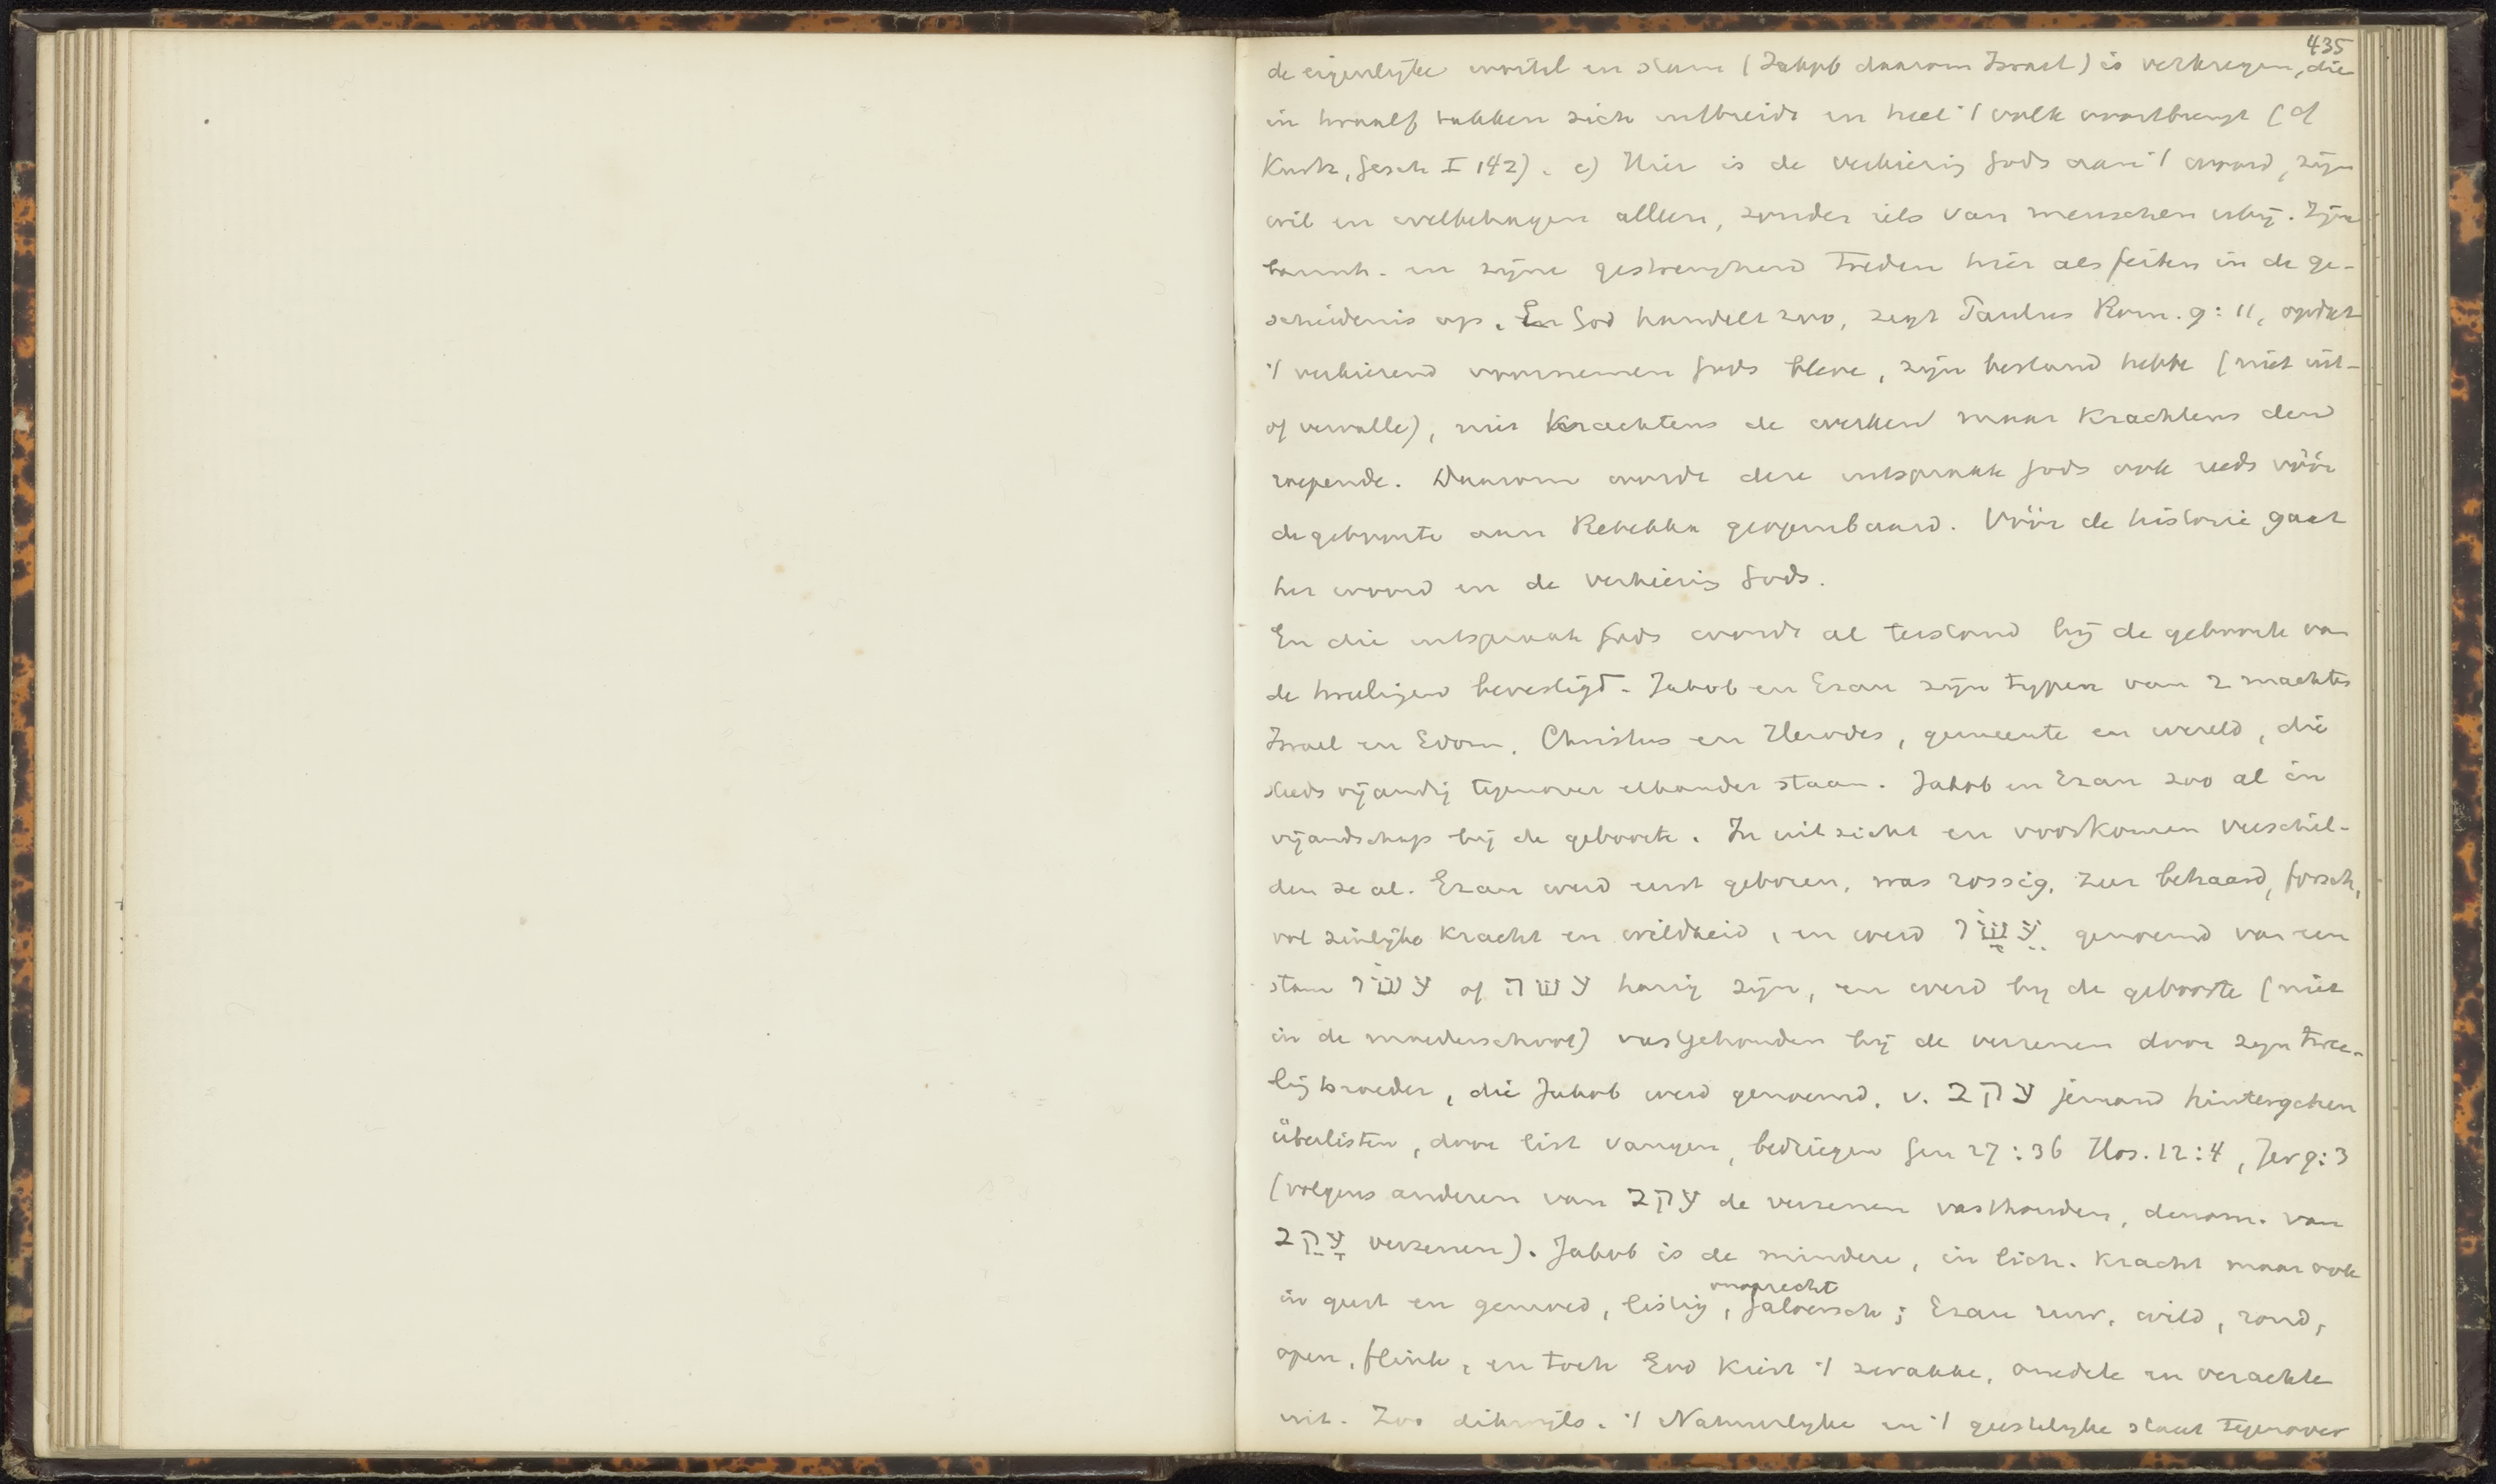 435
de eigenlijke wortel en stam (Jakob daarom Israel) is verkregen, die
in twaalf takken zich uitbreidt en heel 't volk voortbrengt (cf
Kurtz, Gesch I 142). c) Hier is de verkiezing Gods aan 't woord, zijn
wil en welbehagen alleen, zonder iets van menschen erbij. Zijn
barmh. en zijne gestrengheid treden hier als feiten in de ge-
schiedenis op. En God handelt zoo, zegt Paulus Rom. 9:11, opdat
't verkiezend voornemen Gods bleve, zijn bestand hebbe (niet uit-
of vervalle), niet krachtens de werken maar krachtens den
roepende. Daarom wordt deze uitspraak Gods ook reeds vóór
de geboorte aan Rebekka geopenbaard. Vóór de historie gaat
het woord en de verkiezing Gods.
En die uitspraak Gods wordt al terstond bij de geboorte van
de tweelingen bevestigd. Jakob en Ezau zijn typen van 2 machten
Israel en Edom, Christus en Herodes, gemeente en wereld, die
steeds vijandig tegenover elkander staan. Jakob en Ezau zoo al in
vijandschap bij de geboorte. In uitzicht en voorkomen verschil-
den ze al. Ezau werd eerst geboren, was rossig, zeer behaard, forsch,
vol zinlijke kracht en wildheid, en werd עֵשָׂו genoemd van een
stam עשׂו of עשה harig zijn, en werd bij de geboorte (niet
in de moederschoot) vastgehouden bij de verzenen door zijn twee-
lingbroeder, die Jakob werd genoemd, v. עקב jemand hintergehen
überlisten, door list vangen, bedriegen Gen 27:36 Hos. 12:4, Jer 9:3
(volgens anderen van עקב de verzenen vasthouden, denom. van
עָקֵב verzenen). Jakob is de mindere, in lich. kracht maar ook
in geest en gemoed, listig, onoprecht, jaloersch; Ezau ruw, wild, rond,
open, flink, en toch God kiest 't zwakke, onedele en verachte
uit. Zoo dikwijls. 't Natuurlijke en 't geestelijke staat tegenover